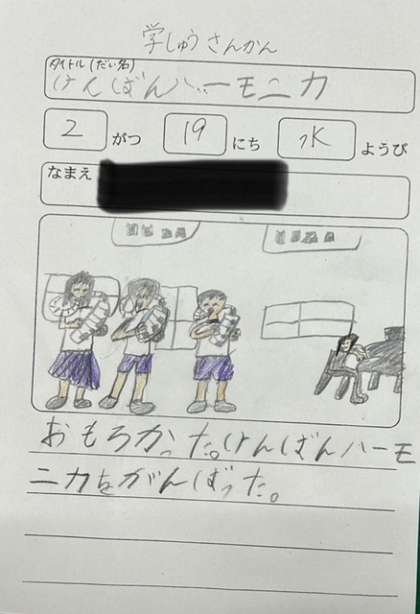 学しゅうさんかん
タイトル(だい名)
けんばんハーモニカ
2 がつ 19 にち 水 ようび
なまえ
おもろかった。けんばんハーモ
ニカをがんばった。